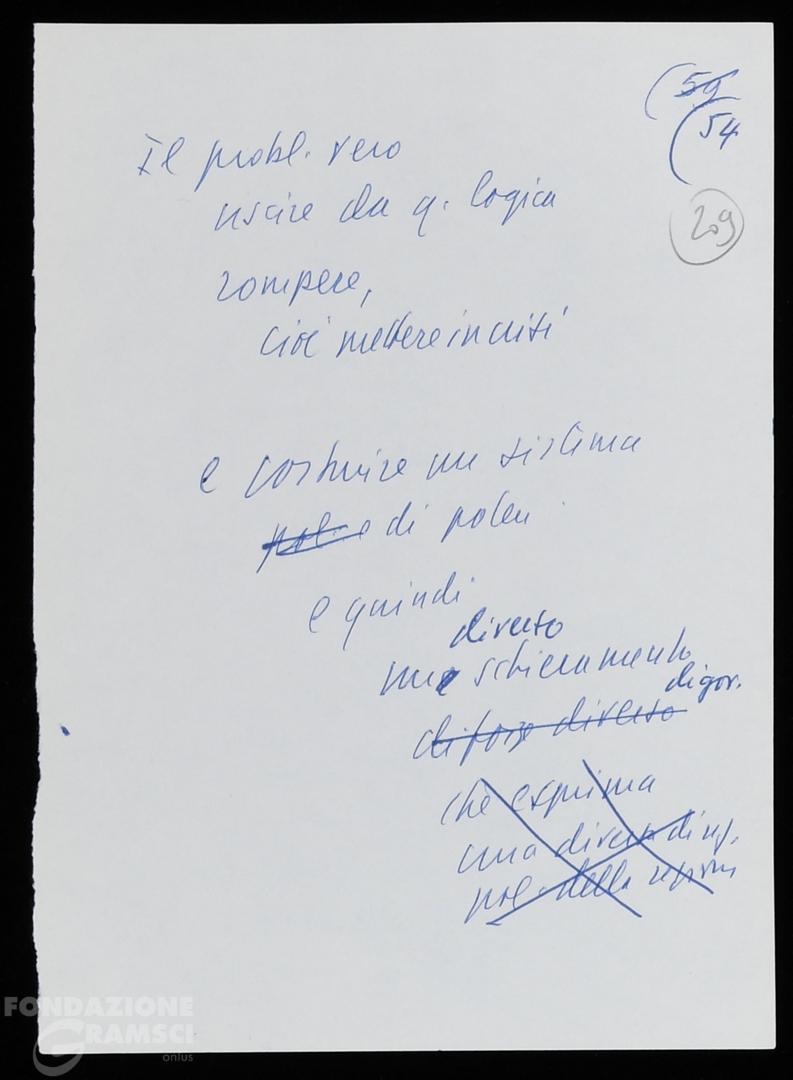 (59
(54
209
Il probl. vero
uscire da q. logica
rompere,
cioè mettere in crisi
e costruire un sistema
pol. e di poteri
e quindi
diverso
un schieramento
di gov.
di forze diverso
che esprima
una diversa
pol. della
FONDAZIONE
GRAMSCI
onlus